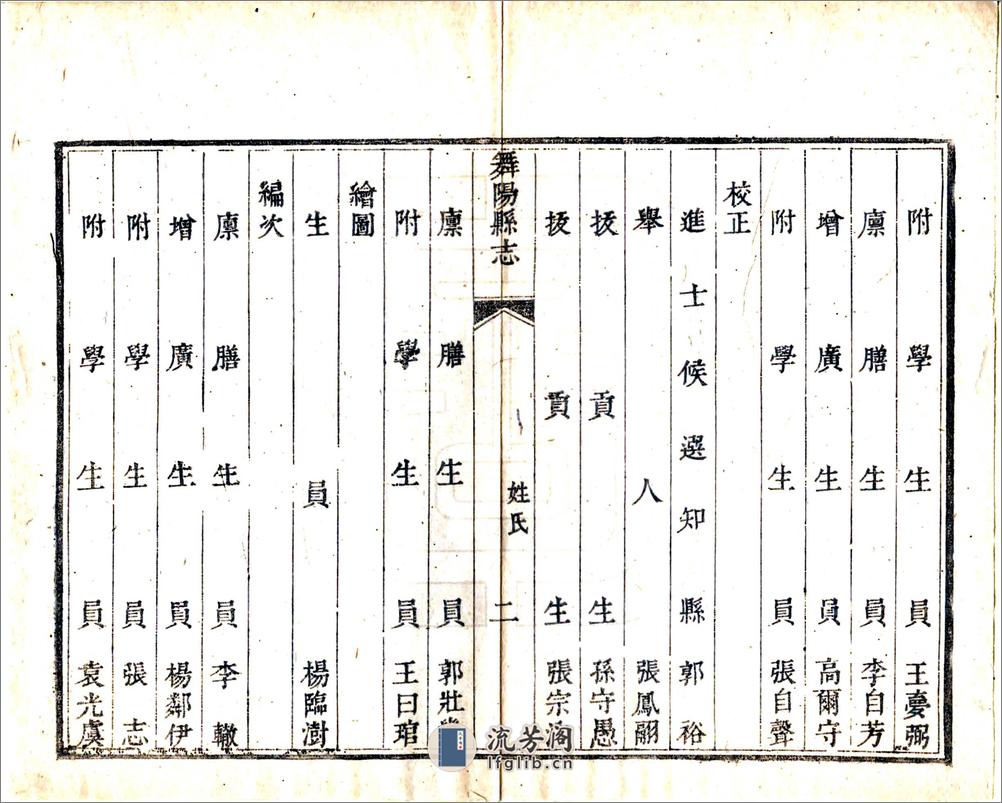 附學生員王憂弼
廪膳生員李自芳
增廣生員高爾守
附學生員張自聲
校正
進士候選知縣郭裕
舉人張鳳翮
拔貢生孫守愚
拔貢生張宗
舞陽縣志
姓氏
二
廪膳生員郭壯
附學生員王曰琯
繪圖
生員楊臨澍
編次
廪膳生員李轍
增廣生員楊鄰伊
附學生員張志
附學生員袁光虞
流芳阁
lfglib.cn